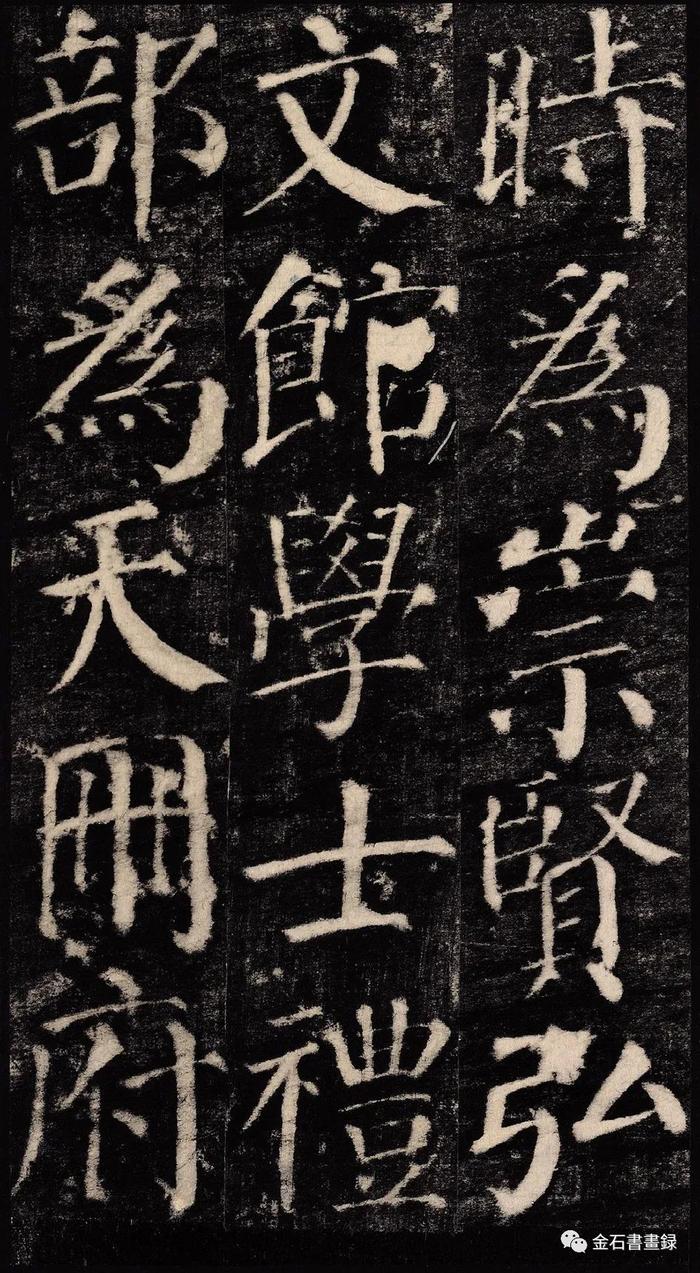 時爲崇賢弘
文館學士禮
部爲天冊府
金石書畫録